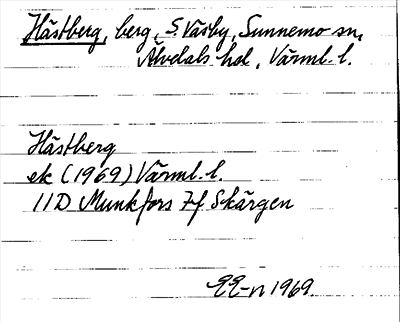 Hästberg, berg, S. Väsby, Sunnemo sn,
Älvdals hd, Värml. l.
Hästberg
ek (1969) Värml. l.
11D Munkfors 7f Skärgen
1969.